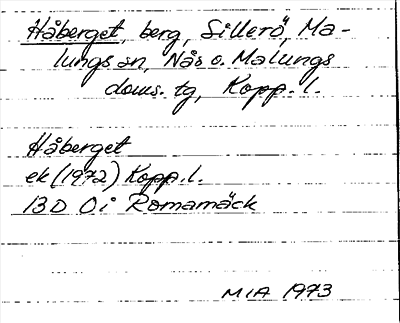 Håberget, berg, Sillerö, Ma-
lungs sn, Nås o. Malungs
doms. tg, Kopp. l.
Håberget
ek (1972) Kopp. l.
13D 0i Romamäck
MIA 1973